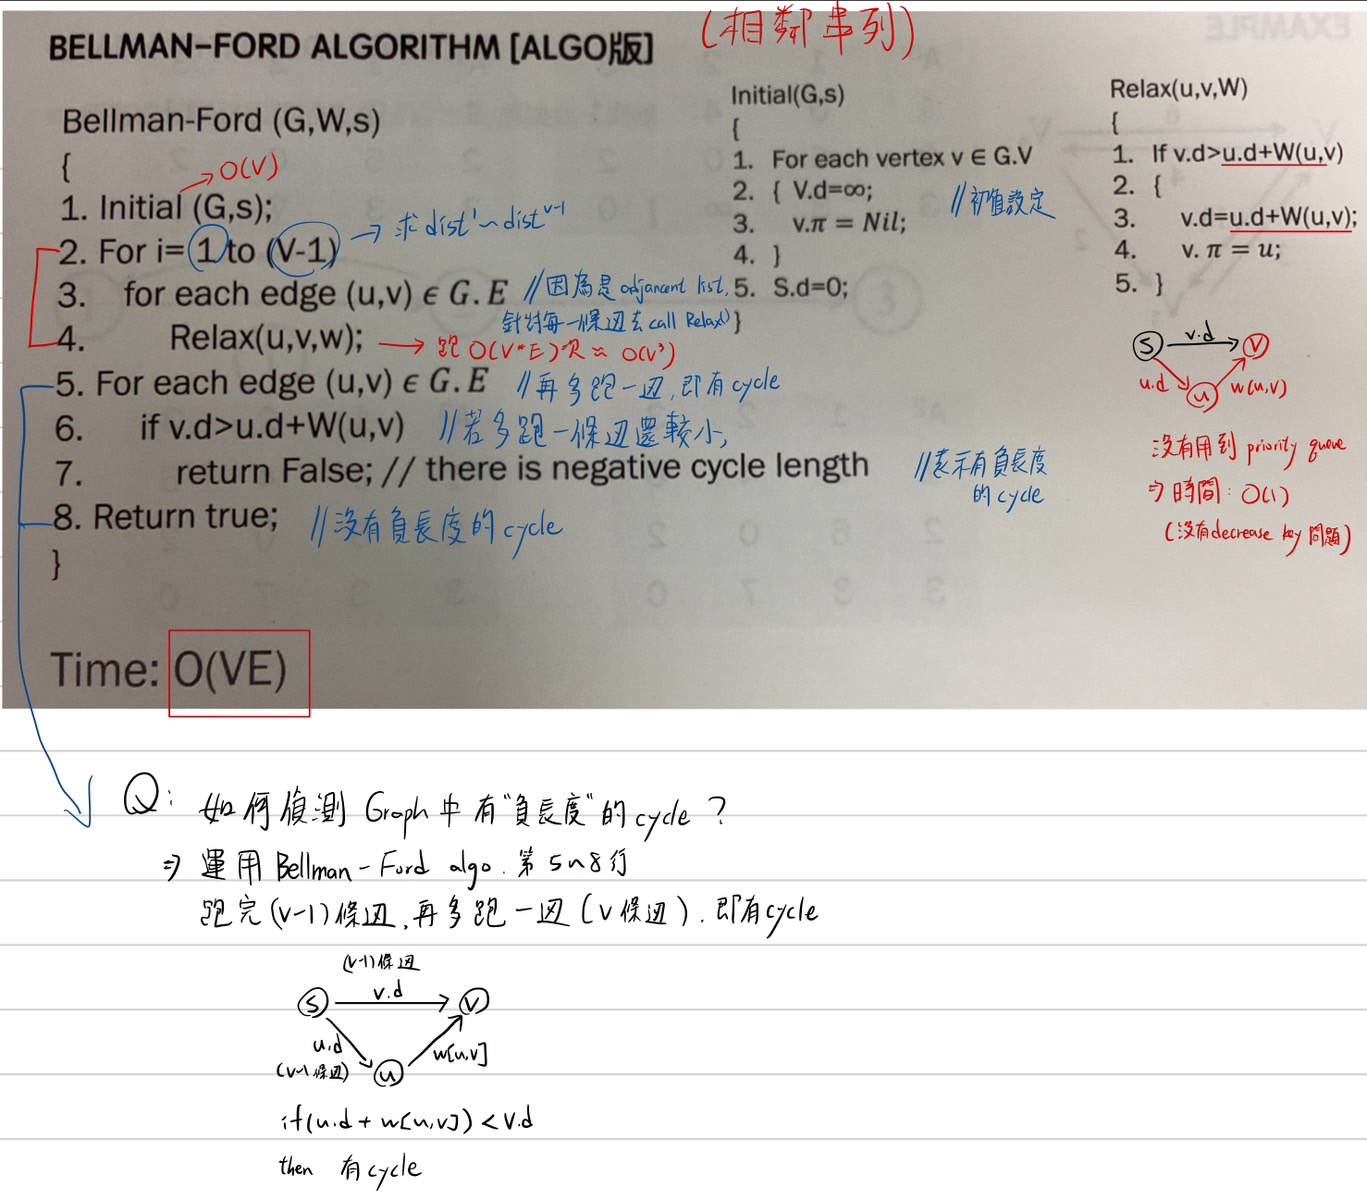 (相鄰串列)
BELLMAN–FORD ALGORITHM [ALGO版]
Bellman-Ford (G,W,s)
{
→ O(V)
1. Initial (G,s);
2. For i= 1 to (V-1) → 求 dist¹ ~ distⱽ⁻¹
3. for each edge (u,v) ∈ G.E //因為是 adjancent list,
針對每一條邊去 call Relax()
4. Relax(u,v,w); → 跑 O(V*E)次 ≈ O(V³)
5. For each edge (u,v) ∈ G.E //再多跑一边,即有cycle
6. if v.d>u.d+W(u,v) //若多跑一條边還較小,
7. return False; // there is negative cycle length //表示有負長度
的cycle
8. Return true; //沒有負長度的cycle
}
Time: O(VE)
Initial(G,s)
{
1. For each vertex v ∈ G.V
2. { V.d=∞; //初值設定
3. v.π = Nil;
4. }
5. S.d=0;
}
Relax(u,v,W)
{
1. If v.d>u.d+W(u,v)
2. {
3. v.d=u.d+W(u,v);
4. v. π = u;
5. }
S v.d V
u.d u w(u,v)
沒有用到 priority queue
⇒ 時間: O(1)
(沒有decrease key 問題)
Q: 如何偵測 Graph 中有"負長度"的cycle ?
⇒ 運用 Bellman-Ford algo. 第5~8行
跑完(v-1)條边,再多跑一边(v條边),即有cycle
(v-1)條边
S v.d V
u.d w[u,v]
(v-1條边) u
if(u.d + w[u,v]) < v.d
then 有cycle